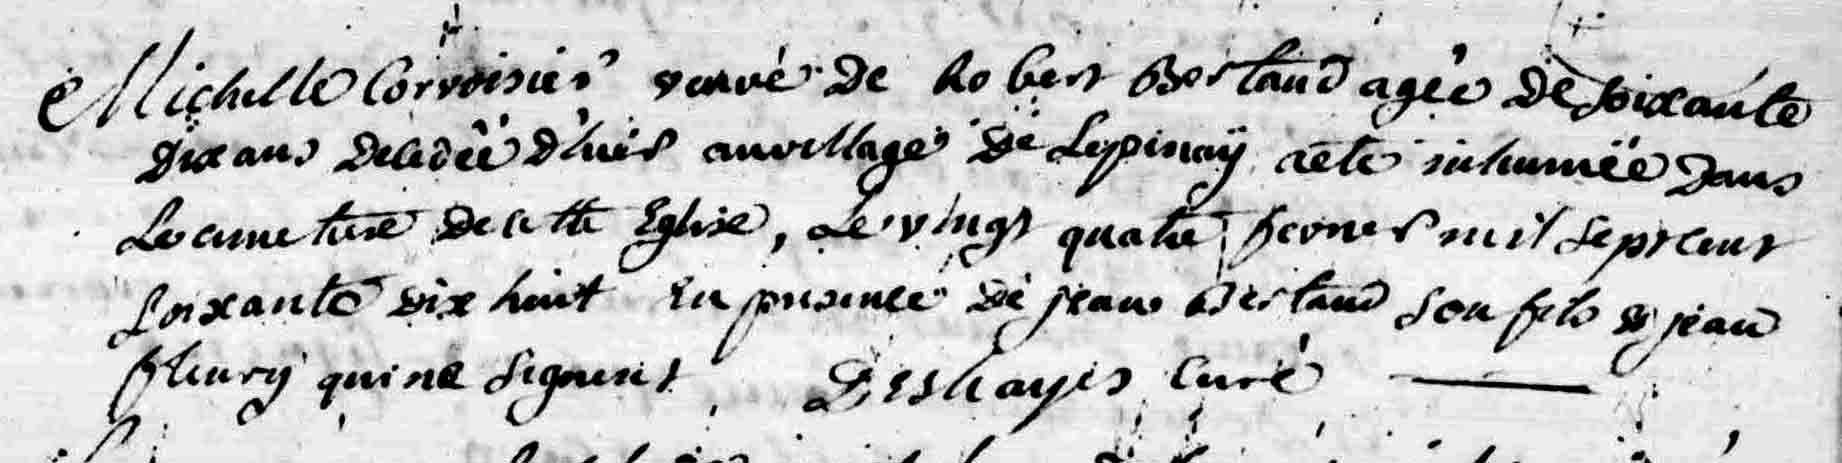 Michelle Corvoisier veuve de Robert Bertaud agée de soixante
dix ans decedée d'hier au village de Lepinay a eté inhumée dans
Le cimetiere de cette Eglise, Le vingt quatre fevrier mil sept cent
soixante dix huit en presence de jean Bertaud son fils & jean
fleury qui ne signent Deshayes curé